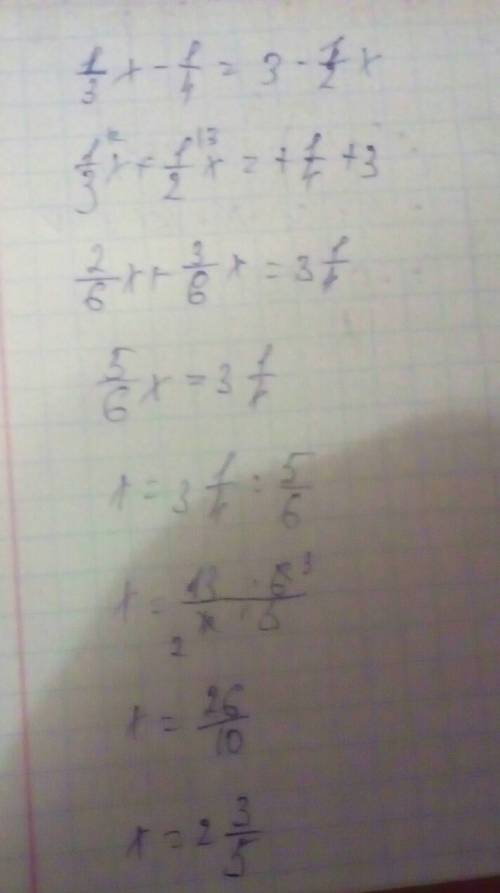 1/3 x - 1/4 = 3 - 1/2 x
1/3 x + 1/2 x = + 1/4 + 3
2/6 x + 3/6 x = 3 1/4
5/6 x = 3 1/4
x = 3 1/4 : 5/6
x = 13 · 6 3 / 2 4 · 5
x = 26/10
x = 2 3/5